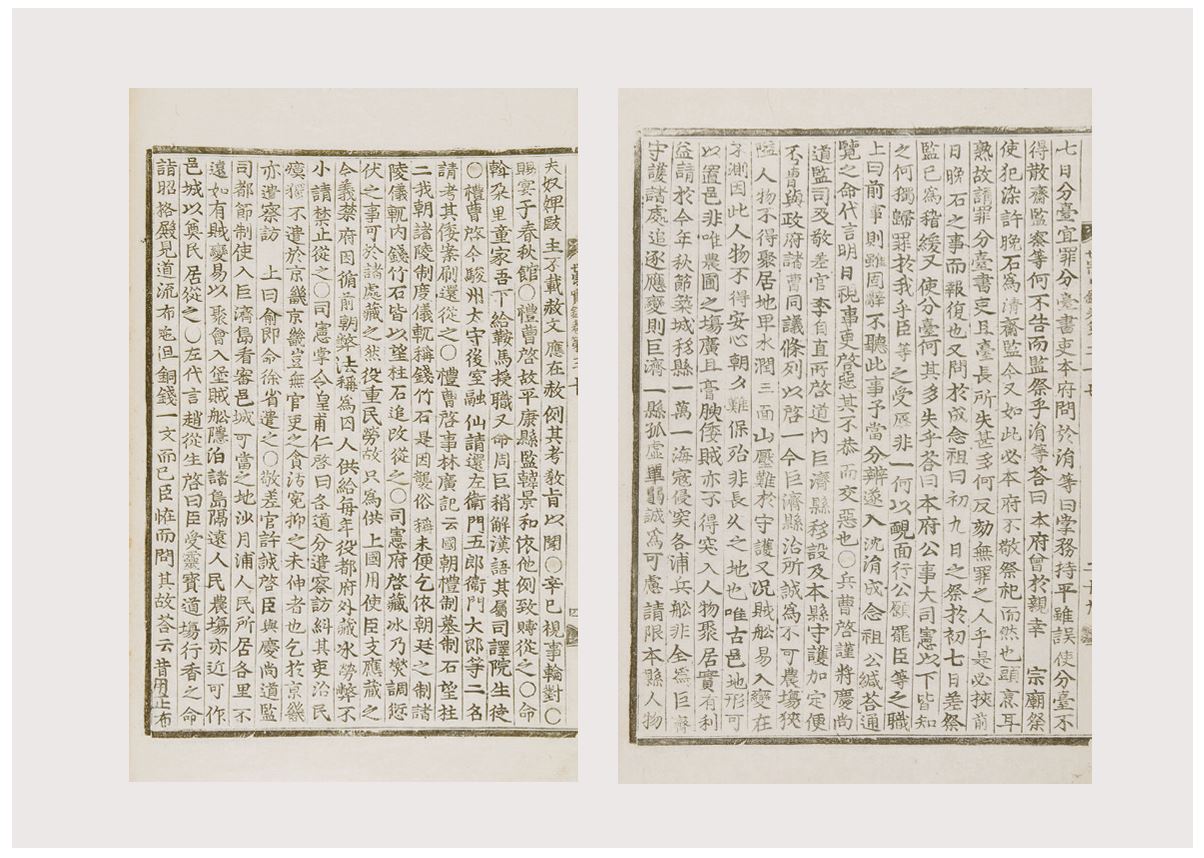 七日分臺宜罪分臺書吏本府問於洧等曰掌務持平雖誤使分臺不
得散齋監察等何不告而監祭乎洧等荅曰本府曾於親幸　宗廟祭
使犯染許晚石爲淸齋監今又如此必本府不敬祭祀而然也頭烹耳
熟故請罪分臺書吏且臺長所失甚多何反劾無罪之人乎是必挾前
日晚石之事而報復也又問於成念祖曰初九日之祭於初七日差祭
監已爲稽緩又使分臺何其多失乎荅曰本府公事大司憲以下皆知
之何獨歸罪於我乎臣等之受辱非一何以靦面行公願罷臣等之職
上曰前事則雖固辭不聽此事予當分辨遂入沈洧成念祖公緘荅通
覽之命代言明日視事更啓惡其不恭而交惡也○兵曹啓謹將慶尚
道監司及敬差官李自直所啓道內巨濟縣移設及本縣守護加定便
否曾與政府諸曹同議條列以啓一今巨濟縣治所誠爲不可農場狹
隘人物不得聚居地卑水潤三面山壓難於守護又况賊船易入變在
不測因此人物不得安心朝夕難保殆非長久之地也唯古邑地形可
以置邑非唯農圃之場廣且膏腴倭賊亦不得突入人物聚居實有利
益請於今年秋節築城移縣一萬一海寇侵突各浦兵船非全爲巨濟
守護諸處追逐應變則巨濟一縣孤虛單弱誠爲可慮請限本縣人物
夫奴婢毆主不載赦文應在赦例其考教旨以聞○辛巳視事輪對○
賜宴于春秋館○禮曹啓故平康縣監韓景和依他例致賻從之○命
斡朶里童家吾下給鞍馬授職又命周巨稍解漢語其屬司譯院生徒
○禮曹啓今駿州太守後室融仙請還左衛門五郎衛門大郎等二名
請考其倭案刷還從之○禮曹啓事林廣記云國朝禮制墓制石望柱
二我朝諸陵制度儀軌稱錢竹石是因襲俗稱未便乞依朝廷之制諸
陵儀軌內錢竹石皆以望柱石追改從之○司憲府啓藏冰乃燮調愆
伏之事可於諸處藏之然役重民勞故只爲供上國用使臣支應藏之
今義禁府因循前朝弊法稱爲囚人供給每年役都府外藏氷勞弊不
小請禁止從之○司憲掌令皇甫仁啓曰各道分遣察訪糾其吏治民
瘼獨不遣於京畿京畿豈無官吏之貪汚寃抑之未伸者也乞於京畿
亦遣察訪　上曰俞即命徐省遣之○敬差官許誠啓臣與慶尚道監
司都節制使入巨濟島看審邑城可當之地沙月浦人民所居各里不
遠如有賊變易以聚會入堡賊船隱泊諸島隅遠人民農場亦近可作
邑城以奠民居從之○左代言趙從生啓曰臣受靈寶道場行香之命
詣昭格殿見道流布施但銅錢一文而已臣恠而問其故荅云昔用正布